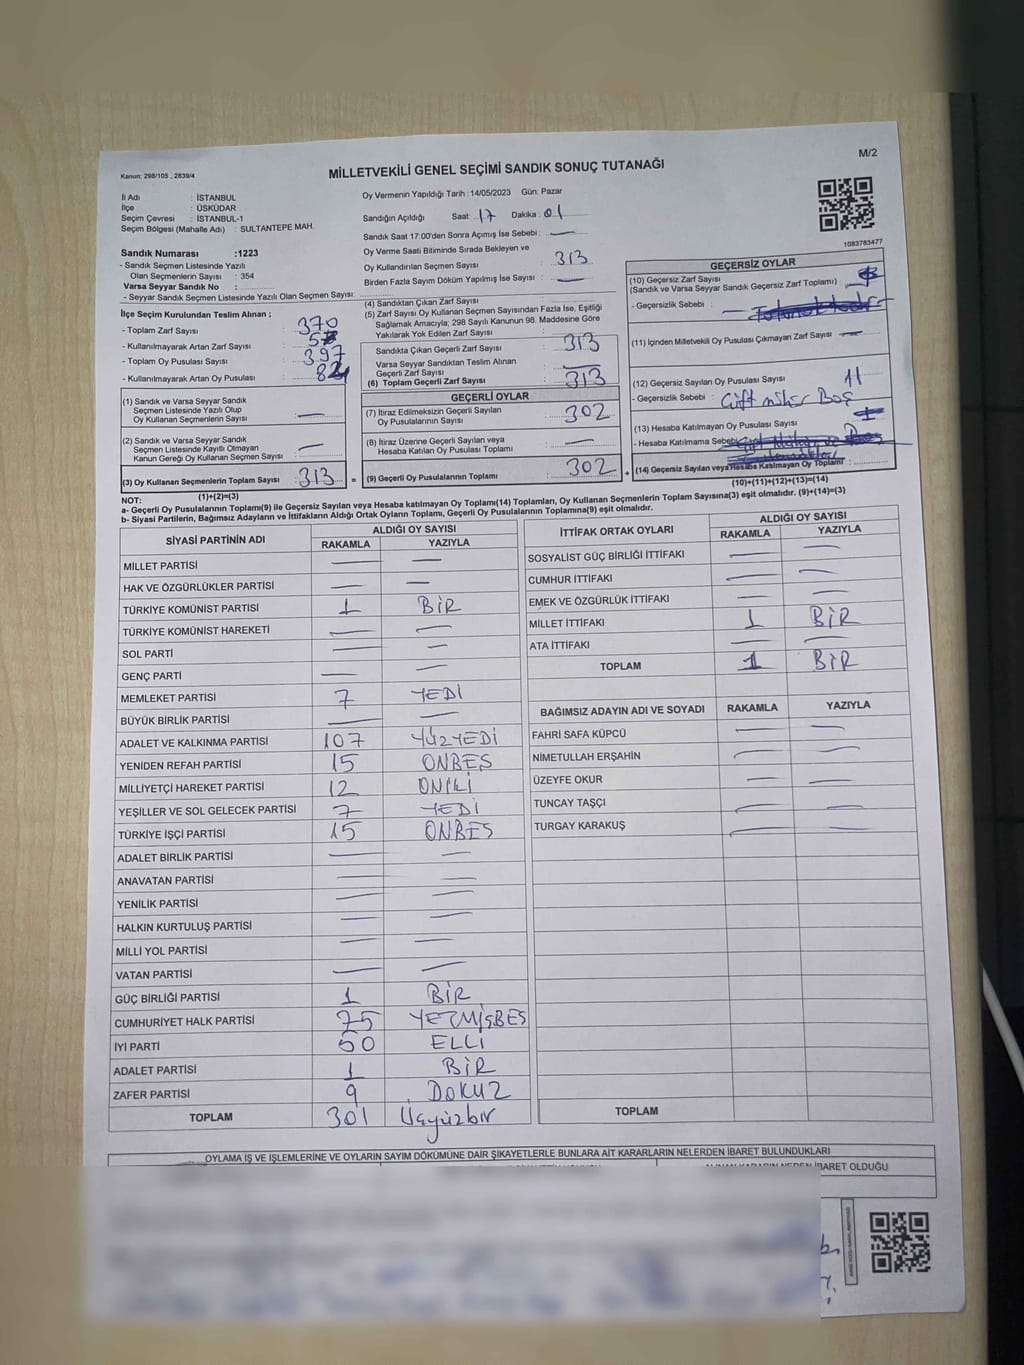 M/2
Kanun; 298/105 , 2839/4
MİLLETVEKİLİ GENEL SEÇİMİ SANDIK SONUÇ TUTANAĞI
İl Adı : İSTANBUL
İlçe : ÜSKÜDAR
Seçim Çevresi : İSTANBUL-1
Seçim Bölgesi (Mahalle Adı) : SULTANTEPE MAH.
Oy Vermenin Yapıldığı Tarih : 14/05/2023 Gün: Pazar
Sandığın Açıldığı Saat: 17 Dakika: 01
Sandık Saat 17:00'den Sonra Açımış İse Sebebi: —
1083783477
Sandık Numarası :1223
- Sandık Seçmen Listesinde Yazılı
Olan Seçmenlerin Sayısı : 354
Varsa Seyyar Sandık No :
- Seyyar Sandık Seçmen Listesinde Yazılı Olan Seçmen Sayısı:
İlçe Seçim Kurulundan Teslim Alınan ;
- Toplam Zarf Sayısı : 370
- Kullanılmayarak Artan Zarf Sayısı :
- Toplam Oy Pusulası Sayısı : 397
- Kullanılmayarak Artan Oy Pusulası :
(1) Sandık ve Varsa Seyyar Sandık
Seçmen Listesinde Yazılı Olup
Oy Kullanan Seçmenlerin Sayısı : —
(2) Sandık ve Varsa Seyyar Sandık
Seçmen Listesinde Kayıtlı Olmayan
Kanun Gereği Oy Kullanan Seçmen Sayısı : —
(3) Oy Kullanan Seçmenlerin Toplam Sayısı : 313
(1)+(2)=(3)
Oy Verme Saati Bitiminde Sırada Bekleyen ve
Oy Kullandırılan Seçmen Sayısı : 313
Birden Fazla Sayım Dökümü Yapılmış İse Sayısı : —
(4) Sandıktan Çıkan Zarf Sayısı :
(5) Zarf Sayısı Oy Kullanan Seçmen Sayısından Fazla İse, Eşitliği
Sağlamak Amacıyla; 298 Sayılı Kanunun 98. Maddesine Göre
Yakılarak Yok Edilen Zarf Sayısı :
Sandıkta Çıkan Geçerli Zarf Sayısı : 313
Varsa Seyyar Sandıktan Teslim Alınan
Geçerli Zarf Sayısı : —
(6) Toplam Geçerli Zarf Sayısı : 313
GEÇERLİ OYLAR
(7) İtiraz Edilmeksizin Geçerli Sayılan
Oy Pusulalarının Sayısı : 302
(8) İtiraz Üzerine Geçerli Sayılan veya
Hesaba Katılan Oy Pusulası Toplamı : —
= (9) Geçerli Oy Pusulalarının Toplamı : 302
GEÇERSİZ OYLAR
(10) Geçersiz Zarf Sayısı
(Sandık ve Varsa Seyyar Sandık Geçersiz Zarf Toplamı) :
- Geçersizlik Sebebi :
(11) İçinden Milletvekili Oy Pusulası Çıkmayan Zarf Sayısı —
(12) Geçersiz Sayılan Oy Pusulası Sayısı : 11
- Geçersizlik Sebebi : Çift mühür Boş
(13) Hesaba Katılmayan Oy Pusulası Sayısı :
- Hesaba Katılmama Sebebi
+ (14) Geçersiz Sayılan veya Hesaba Katılmayan Oy Toplamı :
(10)+(11)+(12)+(13)=(14)
NOT:
a- Geçerli Oy Pusulalarının Toplamı(9) ile Geçersiz Sayılan veya Hesaba katılmayan Oy Toplamı(14) Toplamları, Oy Kullanan Seçmenlerin Toplam Sayısına(3) eşit olmalıdır. (9)+(14)=(3)
b- Siyasi Partilerin, Bağımsız Adayların ve İttifakların Aldığı Ortak Oyların Toplamı, Geçerli Oy Pusulalarının Toplamına(9) eşit olmalıdır.
SİYASİ PARTİNİN ADI ALDIĞI OY SAYISI
RAKAMLA YAZIYLA
MİLLET PARTİSİ — —
HAK VE ÖZGÜRLÜKLER PARTİSİ — —
TÜRKİYE KOMÜNİST PARTİSİ 1 BİR
TÜRKİYE KOMÜNİST HAREKETİ — —
SOL PARTİ — —
GENÇ PARTİ — —
MEMLEKET PARTİSİ 7 YEDİ
BÜYÜK BİRLİK PARTİSİ — —
ADALET VE KALKINMA PARTİSİ 107 YÜZYEDİ
YENİDEN REFAH PARTİSİ 15 ONBEŞ
MİLLİYETÇİ HAREKET PARTİSİ 12 ONİKİ
YEŞİLLER VE SOL GELECEK PARTİSİ 7 YEDİ
TÜRKİYE İŞÇİ PARTİSİ 15 ONBES
ADALET BİRLİK PARTİSİ — —
ANAVATAN PARTİSİ — —
YENİLİK PARTİSİ — —
HALKIN KURTULUŞ PARTİSİ — —
MİLLİ YOL PARTİSİ — —
VATAN PARTİSİ — —
GÜÇ BİRLİĞİ PARTİSİ 1 BİR
CUMHURİYET HALK PARTİSİ 75 YETMİŞBEŞ
İYİ PARTİ 50 ELLİ
ADALET PARTİSİ 1 BİR
ZAFER PARTİSİ 9 DOKUZ
TOPLAM 301 Üçyüzbir
İTTİFAK ORTAK OYLARI ALDIĞI OY SAYISI
RAKAMLA YAZIYLA
SOSYALİST GÜÇ BİRLİĞİ İTTİFAKI — —
CUMHUR İTTİFAKI — —
EMEK VE ÖZGÜRLÜK İTTİFAKI — —
MİLLET İTTİFAKI 1 BİR
ATA İTTİFAKI — —
TOPLAM 1 BİR
BAĞIMSIZ ADAYIN ADI VE SOYADI RAKAMLA YAZIYLA
FAHRİ SAFA KÜPCÜ — —
NİMETULLAH ERŞAHİN — —
ÜZEYFE OKUR — —
TUNCAY TAŞÇI — —
TURGAY KARAKUŞ — —
TOPLAM
OYLAMA İŞ VE İŞLEMLERİNE VE OYLARIN SAYIM DÖKÜMÜNE DAİR ŞİKAYETLERLE BUNLARA AİT KARARLARIN NELERDEN İBARET BULUNDUKLARI
İBARET OLDUĞU